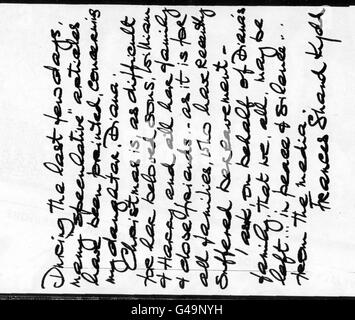 During the last few days,
many "speculative" articles
have been printed concerning
my daughter, Diana.
Christmas is as difficult
for her beloved sons, William
& Harry and all her family
& close friends.. as it is for
all families who have recently
suffered bereavement -
I ask on behalf of Diana's
family that we all may be
left... in peace & silence...
from the media.
Frances Shand Kydd
alamy
Image ID: G49NYH
www.alamy.com